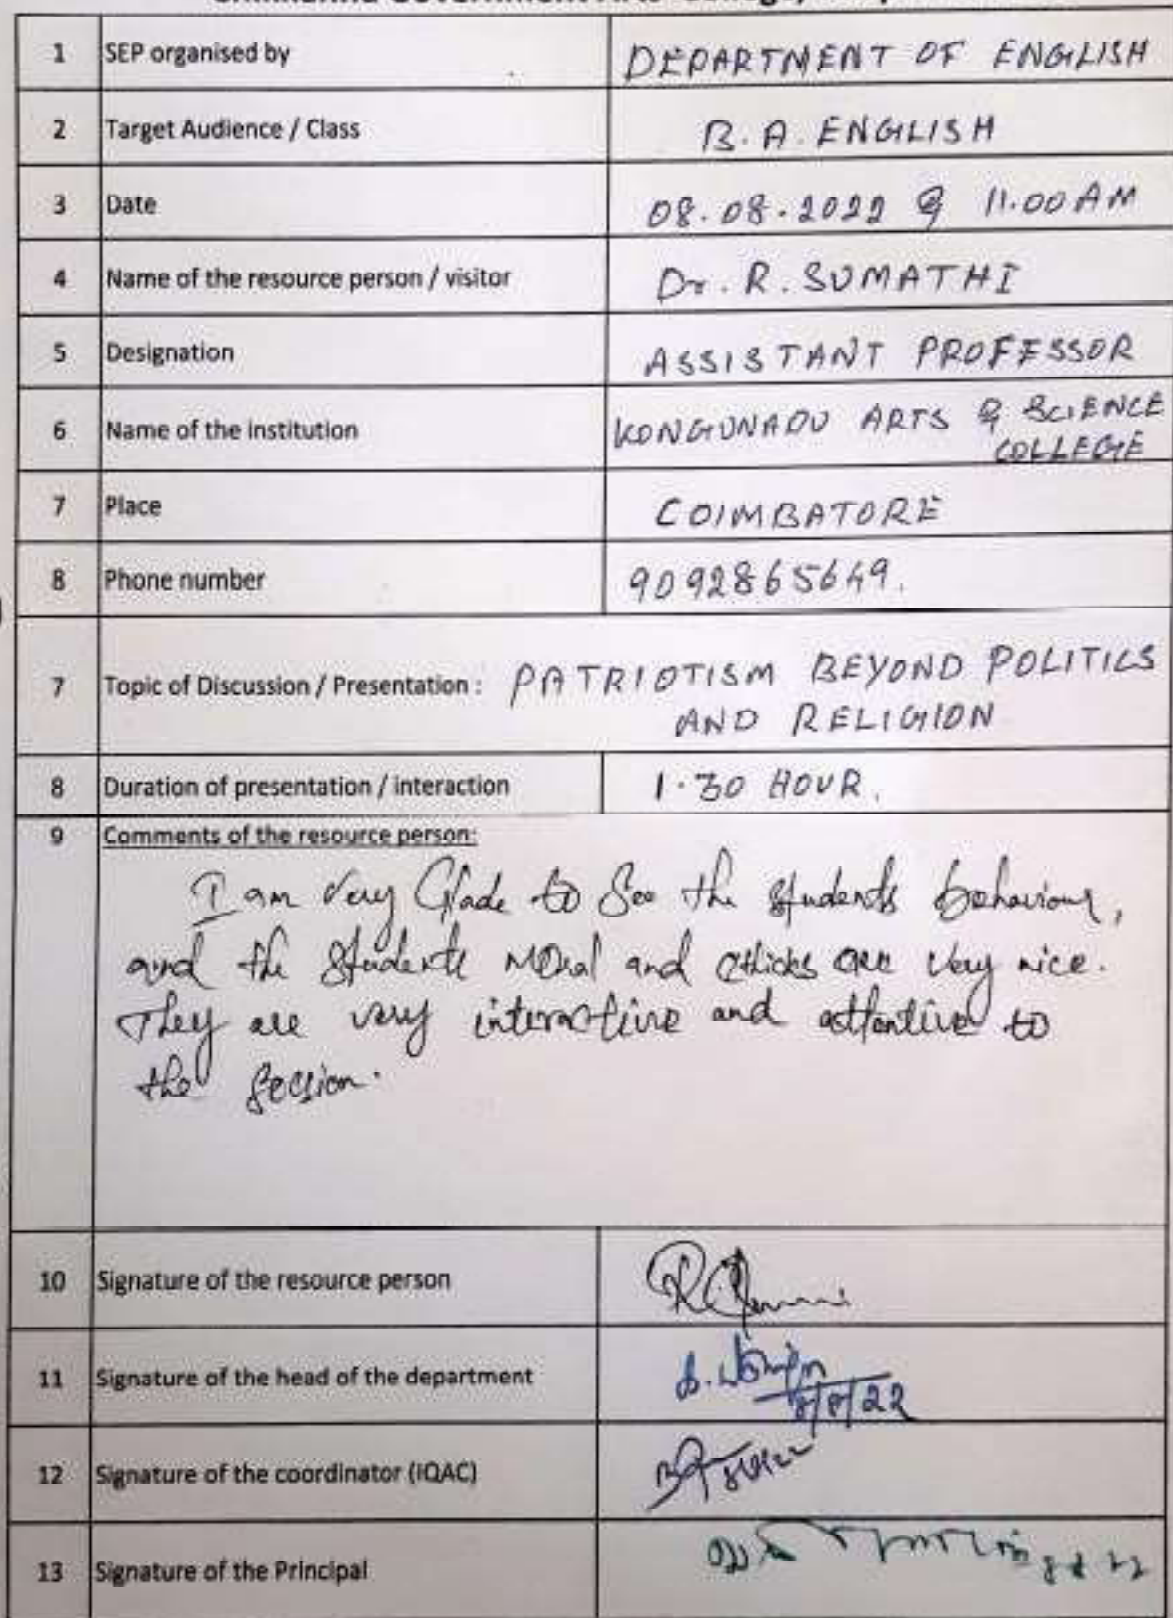 1 SEP organised by DEPARTMENT OF ENGLISH
2 Target Audience / Class B. A. ENGLISH
3 Date 08.08.2022 @ 11.00 AM
4 Name of the resource person / visitor Dr. R. SUMATHI
5 Designation ASSISTANT PROFESSOR
6 Name of the institution KONGUNADU ARTS & SCIENCE
COLLEGE
7 Place COIMBATORE
8 Phone number 9092865649.
7 Topic of Discussion / Presentation : PATRIOTISM BEYOND POLITICS
AND RELIGION
8 Duration of presentation / interaction 1.30 HOUR.
9 Comments of the resource person:
I am very Glade to See the students behaviour,
and the students moral and ethicks are very nice.
They are very interactive and attentive to
the session.
10 Signature of the resource person
11 Signature of the head of the department
8/8/22
12 Signature of the coordinator (IQAC)
13 Signature of the Principal